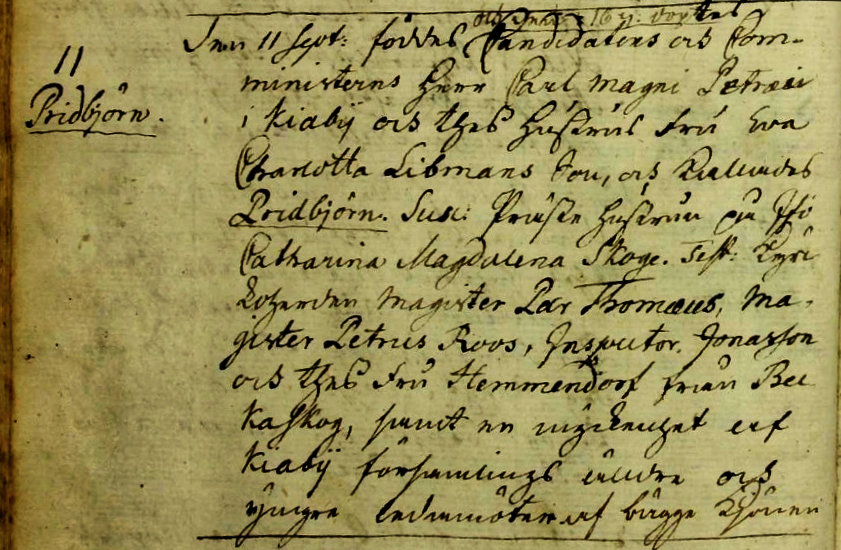 och Christ. 16 N. doptes
11
Pridbjörn.
Den 11 Sept: föddes Candidatens och Com-
ministerns Herr Carl Magni Petræi
i Kiabÿ och thes hustrus Fru Eva
Charlotta Libmans Son, och kallades
Pridbjörn. Susc: Präste hustrun på Ifö
Catharina Magdalena Skoge. Test: Kyrc
koherden Magister Pär Thomæus, Ma-
gister Petrus Roos, Inspector Jonasson
och thes Fru Hemmendorf från Bec
kaskog, samt en myckenhet af
Kiabÿ församlings äldre och
yngre ledamöter af bägge Kiönen